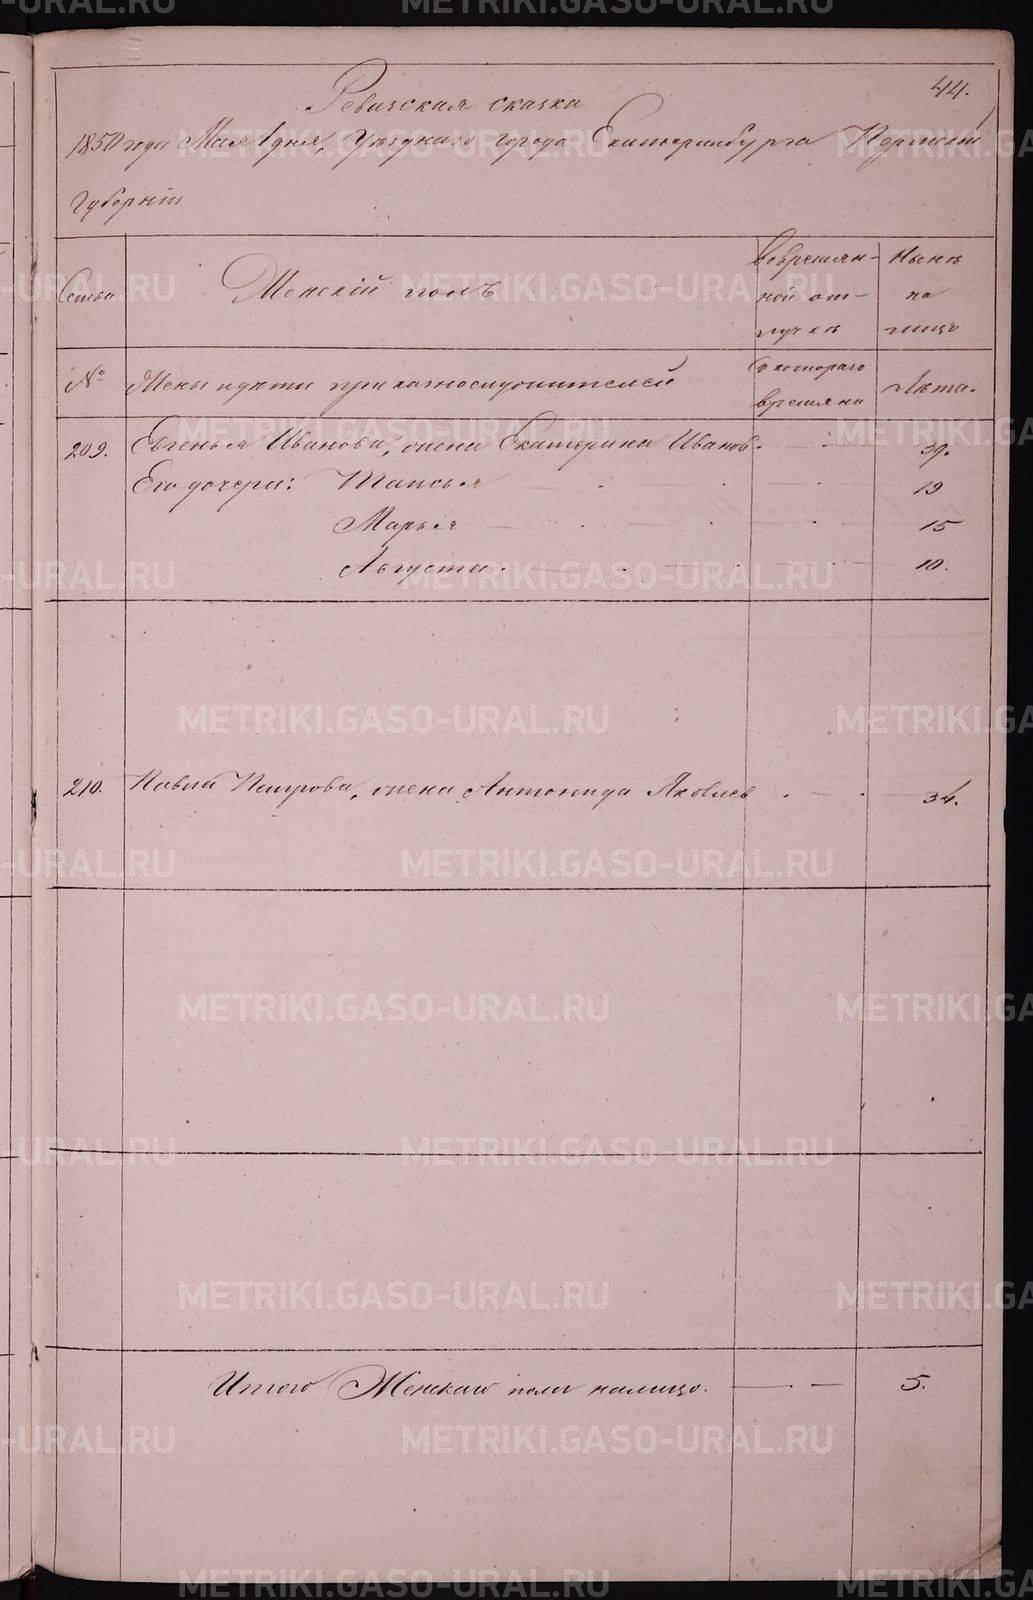 44.
Ревизская сказка
1850 года Мая 1 дня, Уездного города Екатеринбурга Пермской
Губерніи
Семьи
Женскій полъ
Вовремян-
ной от-
лучкѣ
Нынѣ
на
лицо
№
Съ котораго
времяни
Лѣта.
209. Евгенья Иванова, жена Екатерина Иванов. 39.
Его дочери: Таисья 19
Марья 15
Августа. 10.
210. Павла Петрова, жена Антонида Яковлев 34.
Итого Женска полу налицо. 5.
METRIKI.GASO-URAL.RU